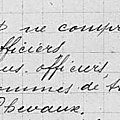 ne compr
officiers
us. officiers,
ommes de t
Chevaux.